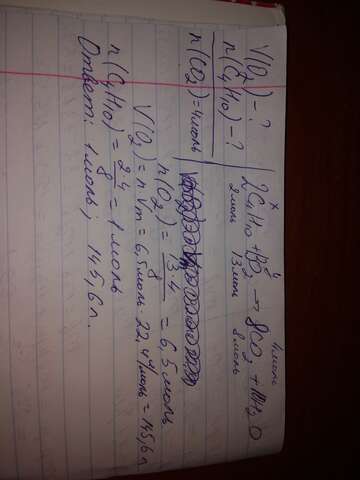 V(O2) - ?
n(C4H10) - ?
n(CO2) = 4 моль
x y 4 моль
2C4H10 + 13O2 → 8CO2 + 10H2O
2 моль 13 моль 8 моль
n(O2) = 13·4 / 8 = 6,5 моль
V(O2) = n · Vm = 6,5 моль · 22,4 л/моль = 145,6 л
n(C4H10) = 2·4 / 8 = 1 моль
Ответ: 1 моль; 145,6 л.